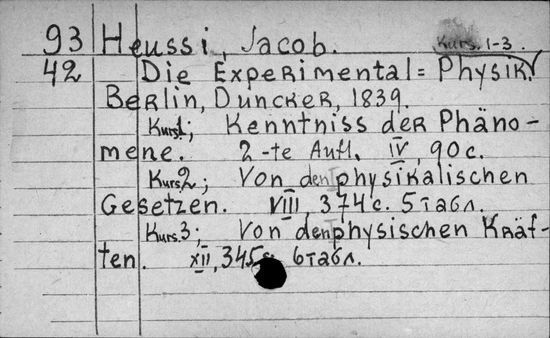 93 Heussi, Jacob. Kurs. 1-3.
42 Die Experimental=Physik.
Berlin, Duncker, 1839.
Kurs1; Kenntniss der Phäno-
mene. 2-te Aufl. IV, 90 c.
Kurs2; Von den physikalischen
Gesetzen. VIII, 374 c. 5 табл.
Kurs.3; Von den physischen Kräf-
ten. XII, 345 c. 6 табл.